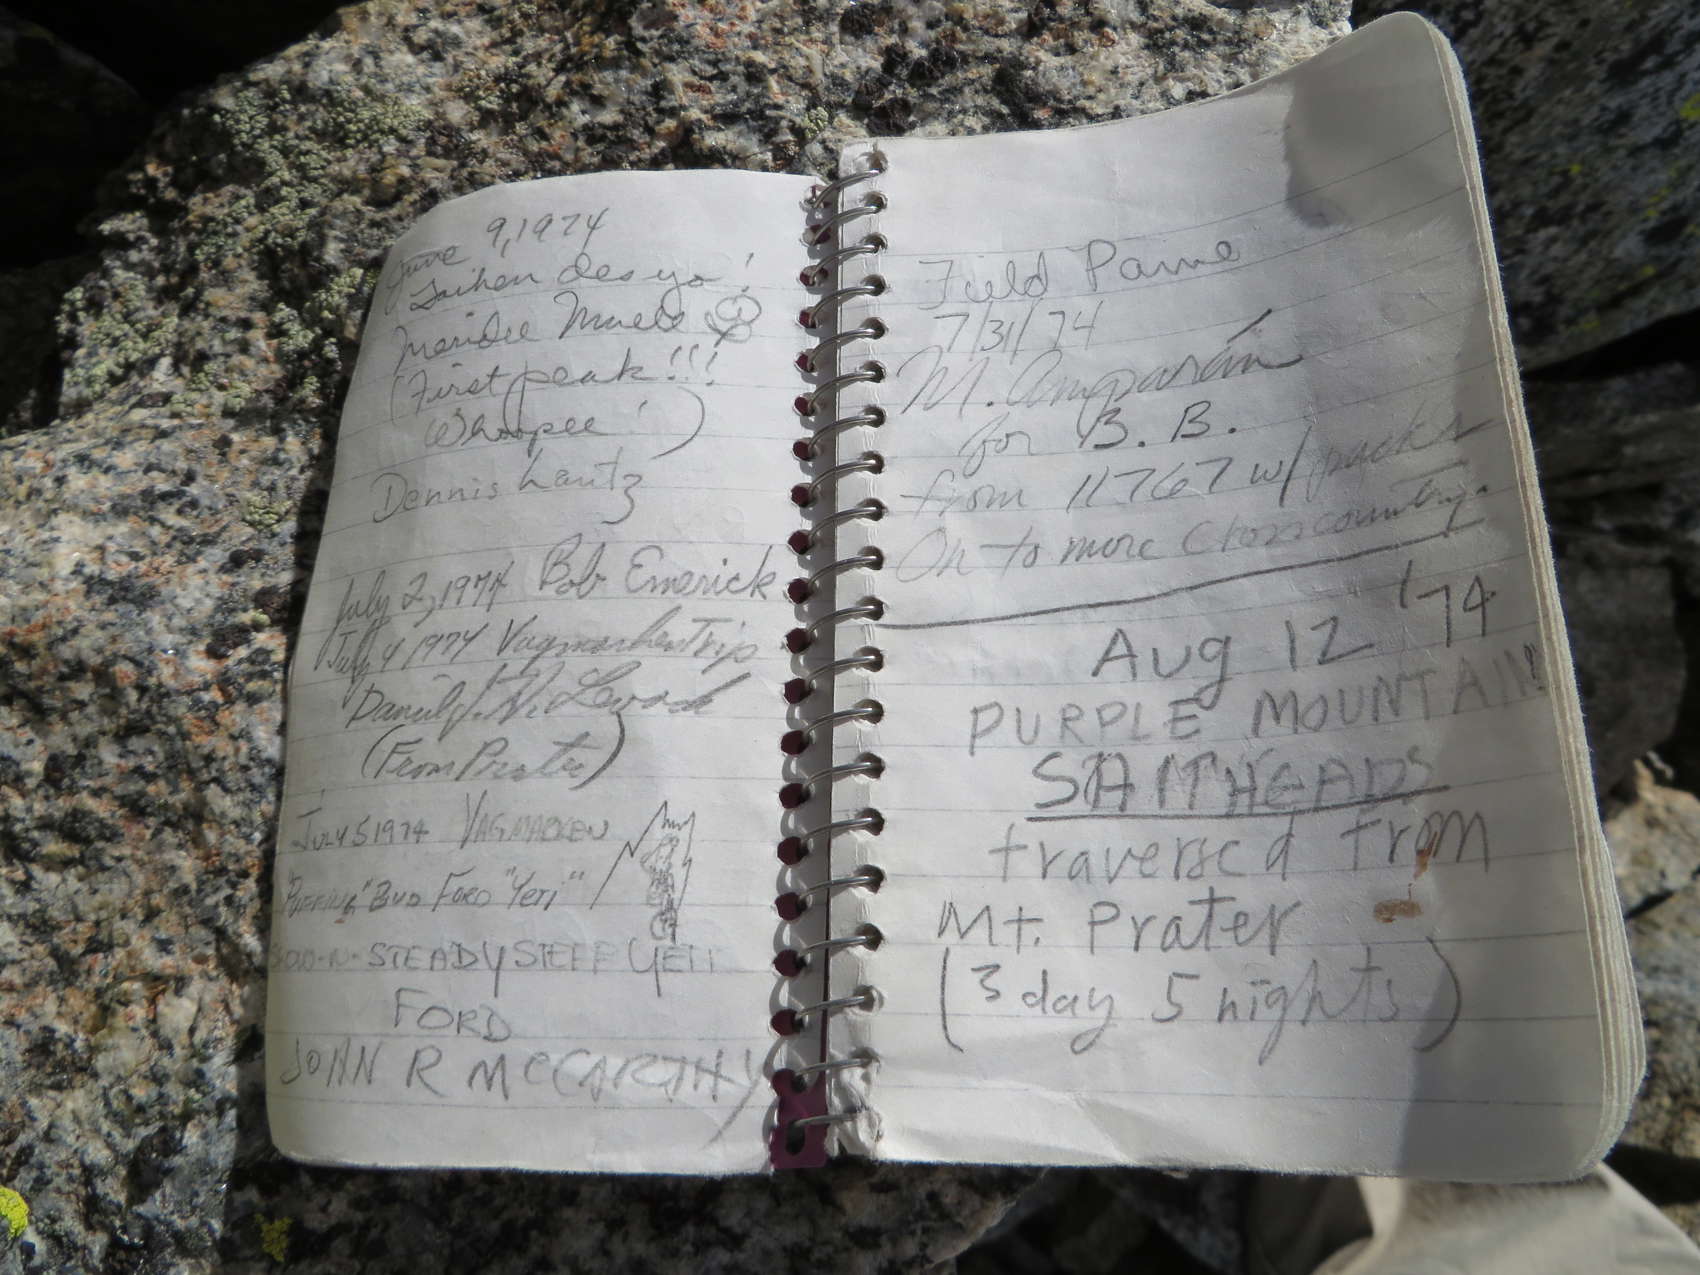 June 9, 1974
Taihen desyo!
Meridee
(First peak!!!
Whoopee!)
Dennis Lantz
July 2, 1974 Bob Emerick
July 4 1974 Vagmarken Trip
Daniel J. N.
(From Prater)
July 5 1974 VAGMARKEN
"PUFFING" BUD FORD "YETI"
STEADY STEFF YETI
FORD
JOHN R McCARTHY
Field Paine
7/31/74
M. Amparán
for B. B.
from 11767 w/ packs
On to more cross country.
Aug 12 '74
PURPLE MOUNTAIN
traversed from
Mt. Prater
(3 day 5 nights)